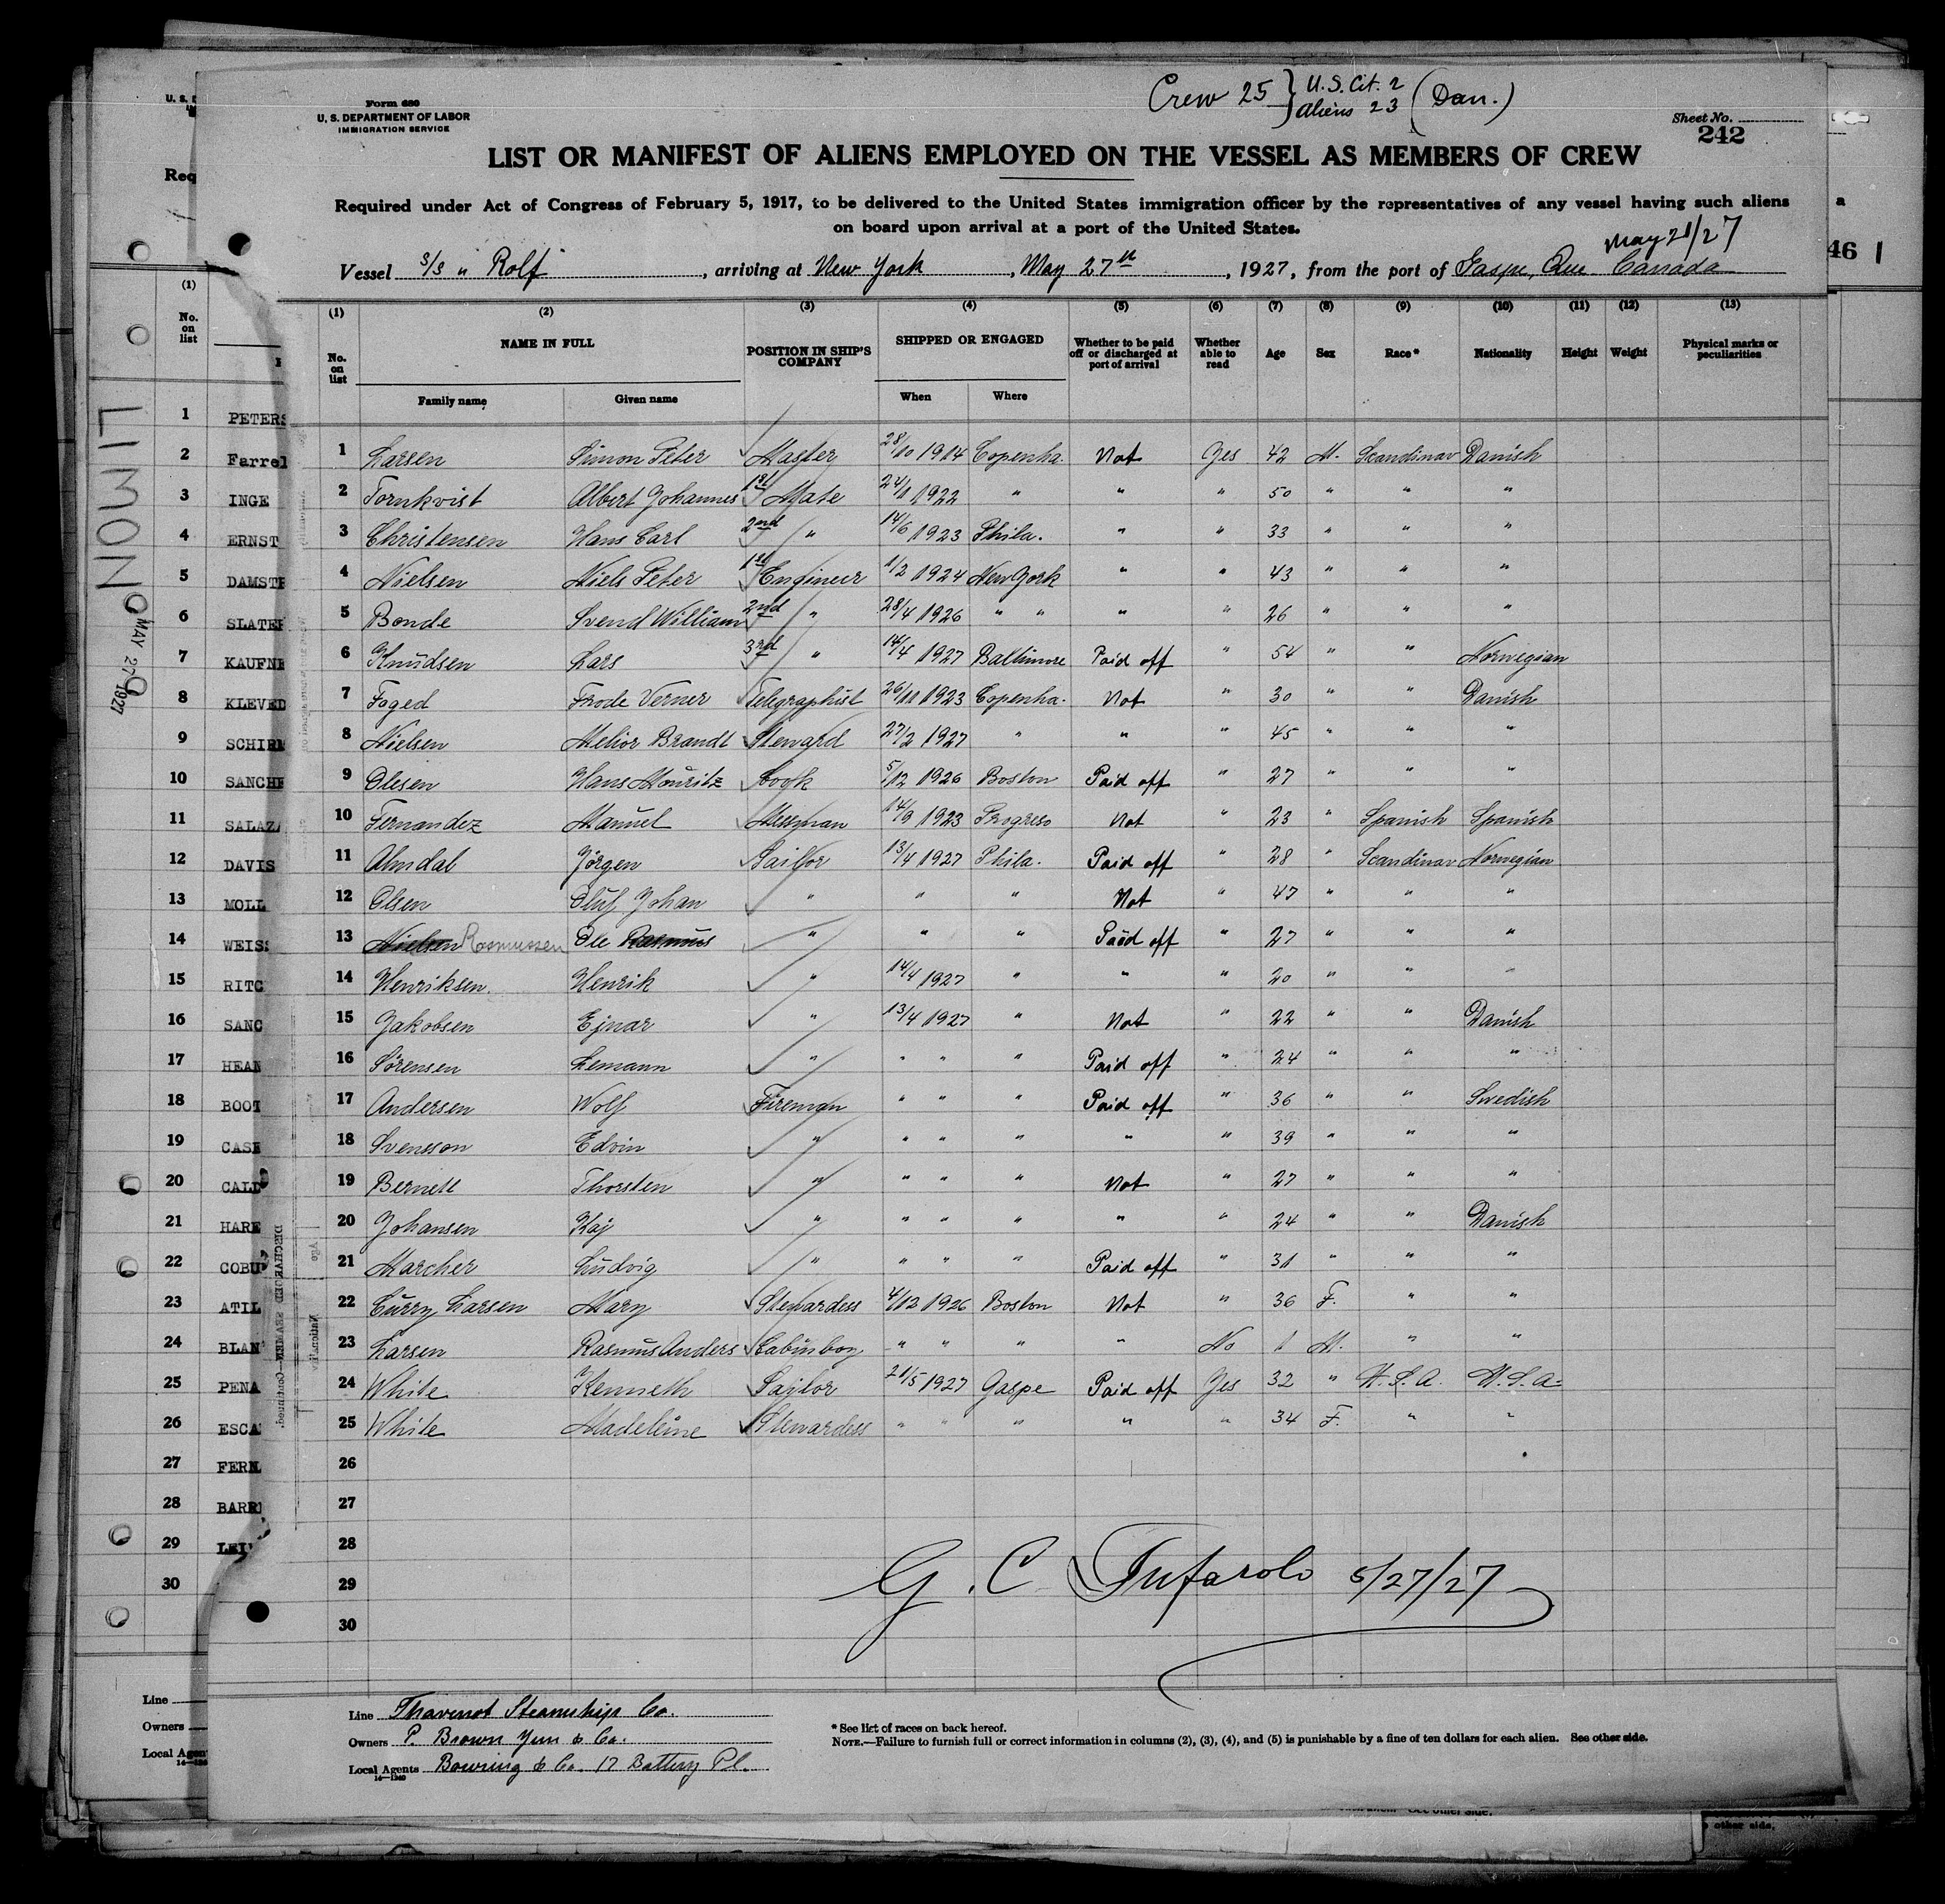 Crew 25 } U.S. Cit. 2
Aliens 23 (Dan.)
Form 680
U. S. DEPARTMENT OF LABOR
IMMIGRATION SERVICE
Sheet No.
242
LIST OR MANIFEST OF ALIENS EMPLOYED ON THE VESSEL AS MEMBERS OF CREW
Required under Act of Congress of February 5, 1917, to be delivered to the United States immigration officer by the representatives of any vessel having such aliens
on board upon arrival at a port of the United States.
May 21/27
Vessel S/S " Rolf " , arriving at New York , May 27th , 1927, from the port of Gaspe, Que Canada
(1) (2) (3) (4) (5) (6) (7) (8) (9) (10) (11) (12) (13)
No. on list NAME IN FULL POSITION IN SHIP'S COMPANY SHIPPED OR ENGAGED Whether to be paid off or discharged at port of arrival Whether able to read Age Sex Race* Nationality Height Weight Physical marks or peculiarities
Family name Given name When Where
1 Larsen Simon Peter Master 28/10 1914 Copenha. Not Yes 42 M. Scandinav Danish
2 Tornkvist Albert Johannes 1st Mate 24/1 1922 " " " 50 " " "
3 Christensen Hans Carl 2nd " 14/6 1923 Phila. " " 33 " " "
4 Nielsen Niels Peter 1st Engineer 1/2 1924 New York " " 43 " " "
5 Bonde Svend William 2nd " 28/4 1926 " " " " 26 " " "
6 Knudsen Lars 3rd " 14/4 1927 Baltimore Paid off " 54 " " Norwegian
7 Foged Frode Verner Telegraphist 26/11 1923 Copenha. Not " 30 " " Danish
8 Nielsen Melior Brandt Steward 27/2 1927 " " " 45 " " "
9 Olesen Hans Mouritz Cook 5/12 1926 Boston Paid off " 27 " " "
10 Fernandez Manuel Messman 14/9 1923 Progreso Not " 23 " Spanish Spanish
11 Almdal Jörgen Sailor 13/4 1927 Phila. Paid off " 28 " Scandinav Norwegian
12 Olsen Oluf Johan " " " Not " 47 " " "
13 Nielsen Rasmussen Ole Rasmus " " " Paid off " 27 " " "
14 Henriksen Henrik " 14/4 1927 " " " 20 " " "
15 Jakobsen Ejnar " 13/4 1927 " Not " 22 " " Danish
16 Sörensen Lemann " " " " Paid off " 24 " " "
17 Andersen Wolf Fireman " " " Paid off " 36 " " Swedish
18 Svensson Edvin " " " " " " 39 " " "
19 Bernett Thorsten " " " " Not " 27 " " "
20 Johansen Kaj " " " " " " 24 " " Danish
21 Marcher Ludvig " " " " Paid off " 31 " " "
22 Curry Larsen Mary Stewardess 4/12 1926 Boston Not " 36 F. " "
23 Larsen Rasmus Anders Cabinboy " " " " No 1 M. " "
24 White Kenneth Sailor 21/5 1927 Gaspe Paid off Yes 32 " U.S.A. U.S.A.
25 White Madeleine Stewardess " " " " " 34 F. " "
26
27
28
29
30
G. C. Tufarolo 5/27/27
Line Thavenot Steamship Co.
Owners P. Brown Jun & Co.
Local Agents Bowring & Co. 17 Battery Pl.
14—1240
* See list of races on back hereof.
NOTE.—Failure to furnish full or correct information in columns (2), (3), (4), and (5) is punishable by a fine of ten dollars for each alien. See other side.
LIMON
MAY 27 1927
Req
(1)
No. on list
1 PETERS
2 Farrel
3 INGE
4 ERNST
5 DAMSTE
6 SLATER
7 KAUFNE
8 KLEVED
9 SCHIRM
10 SANCHE
11 SALAZA
12 DAVIS
13 MOLL
14 WEISS
15 RITC
16 SANC
17 HEAN
18 BOOT
19 CASE
20 CALD
21 HARE
22 COBU
23 ATIL
24 BLAN
25 PENA
26 ESCA
27 FERN
28 BARR
29 LEI
30
Line
Owners
Local Agen
46
DISCHARGED SEAMEN—Continued.